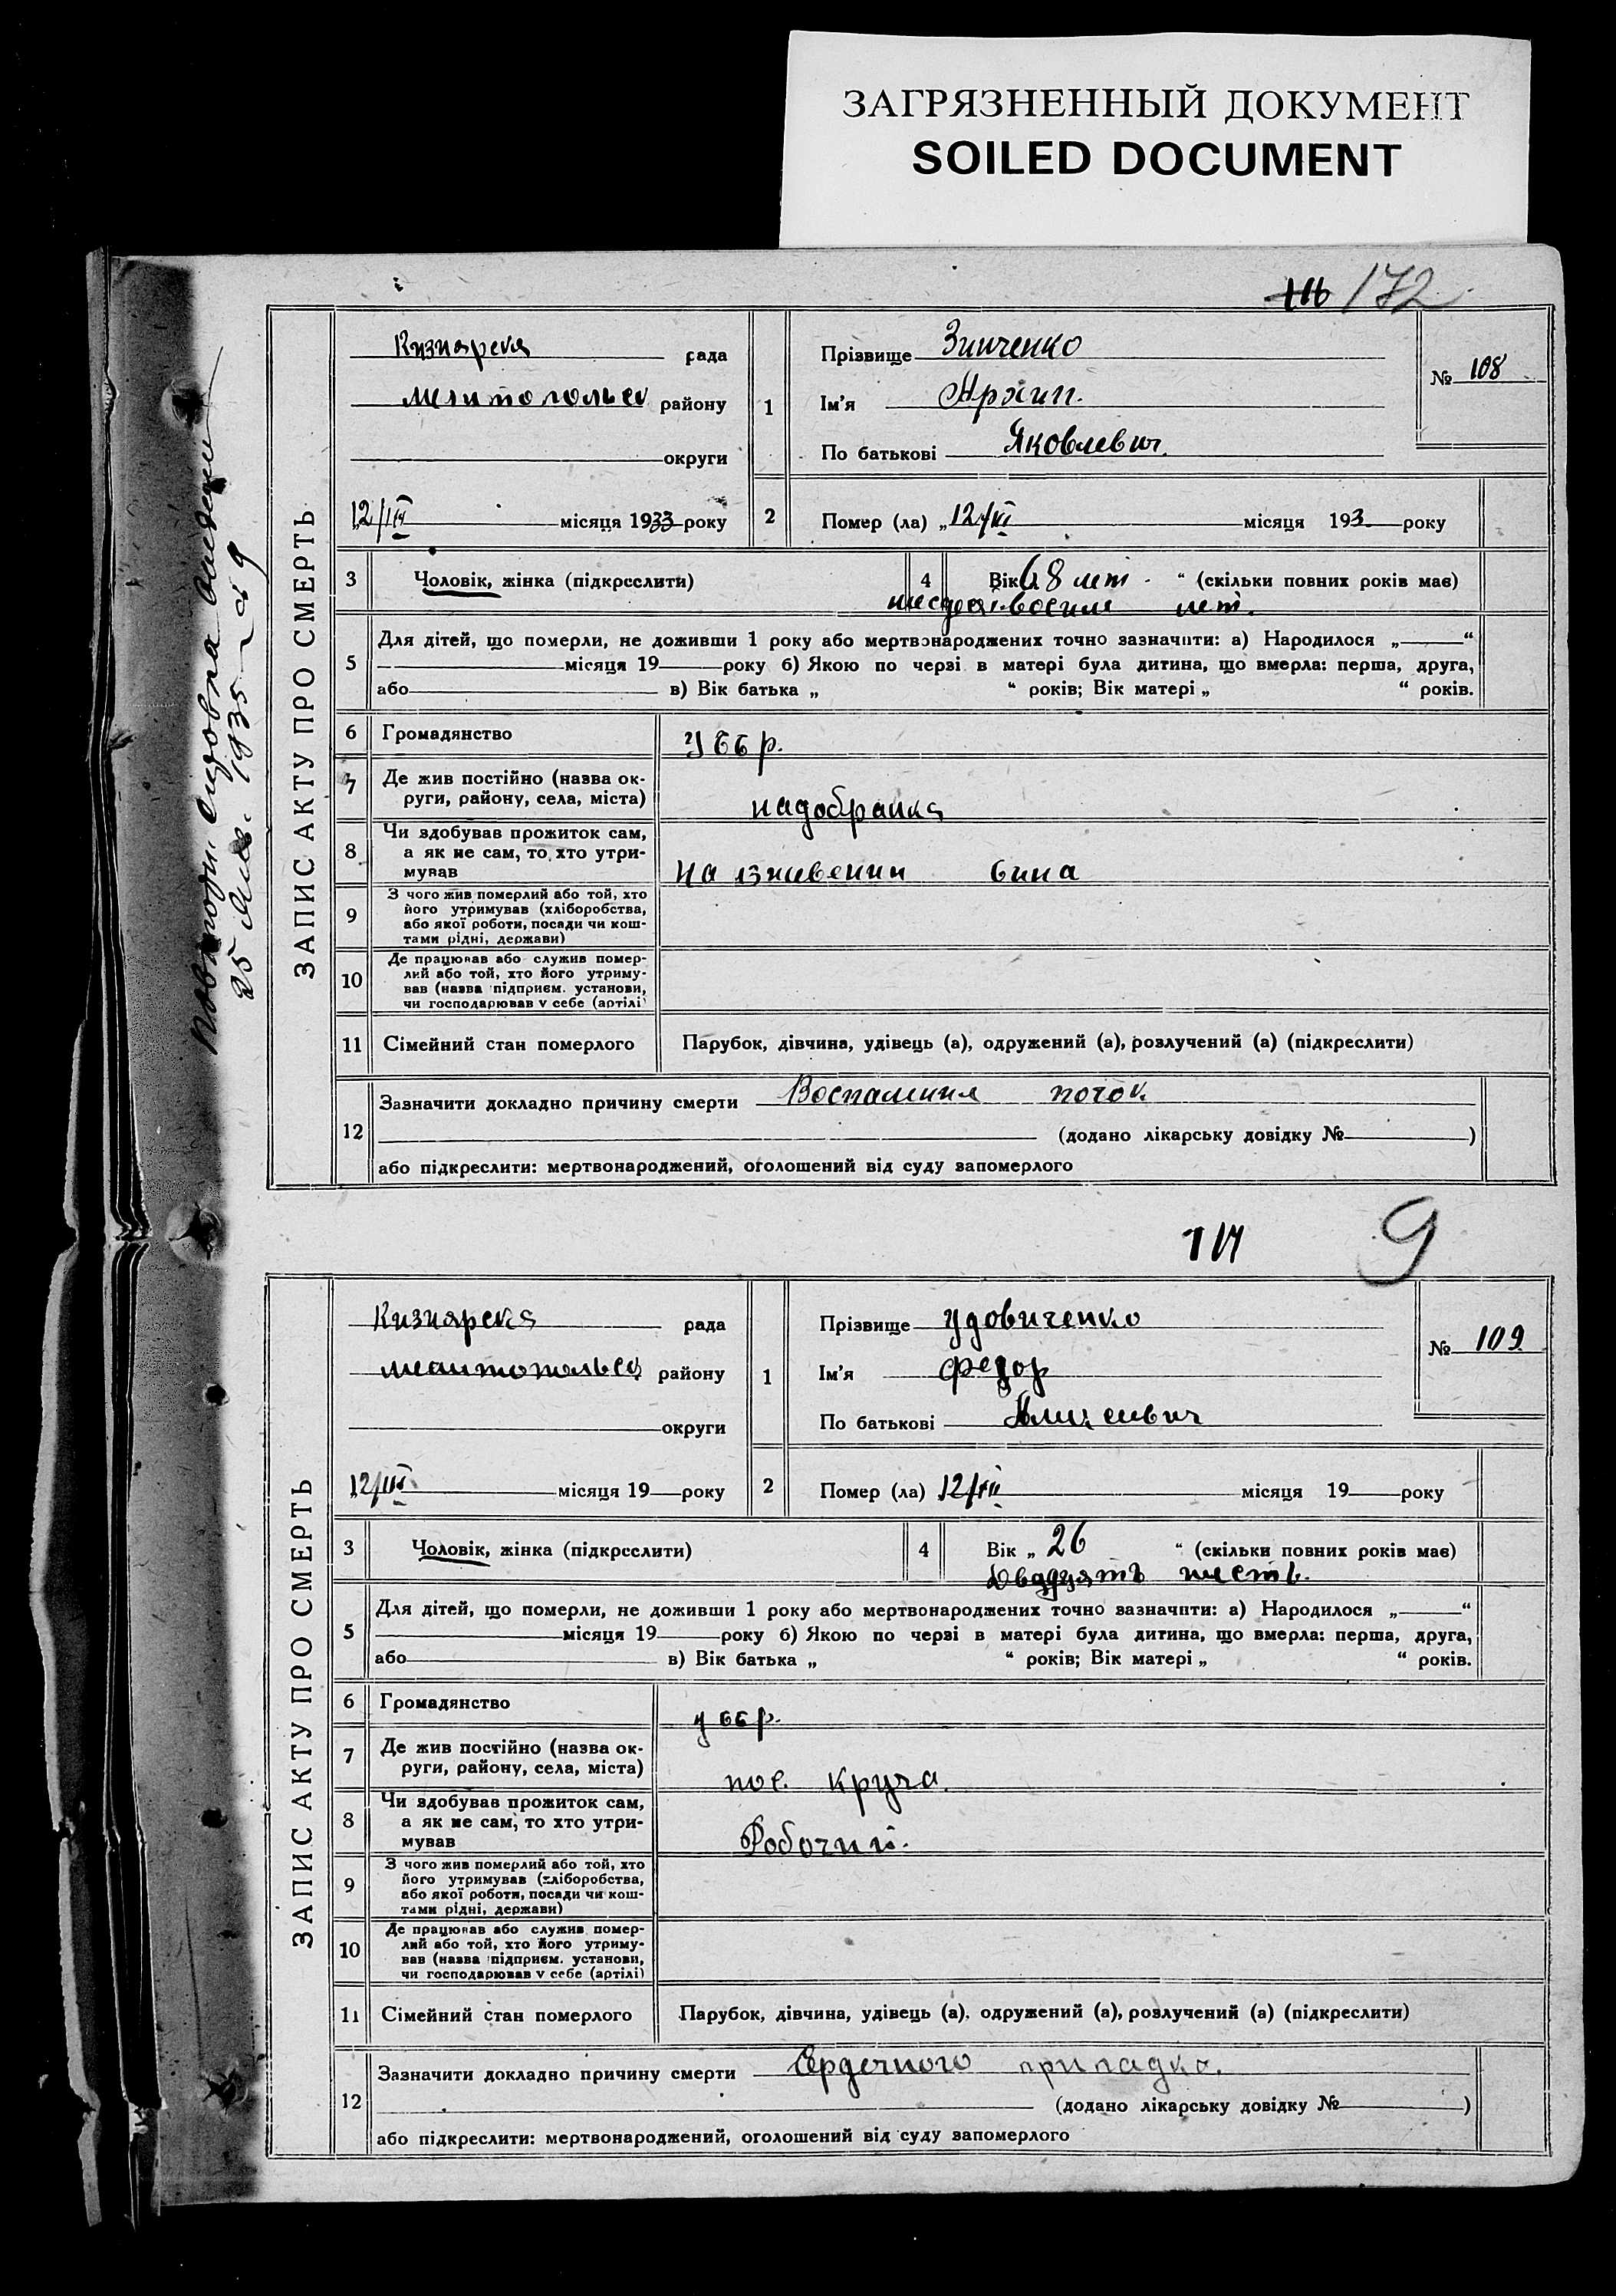 ЗАГРЯЗНЕННЫЙ ДОКУМЕНТ
SOILED DOCUMENT
116 172
ЗАПИС АКТУ ПРО СМЕРТЬ
Кизиярска рада
района
округи
12/III місяця 1933 року
1
Прізвище Зинченко
Ім'я Архип.
По батькові Яковлевич.
№ 108
2
Помер (ла) „12/III місяця 193 року
3 Чоловік, жінка (підкреслити)
4 Вік 68 лет. “ (скільки повних років має)
восим лет.
5 Для дітей, що померли, не доживши 1 року або мертвонароджених точно зазначити: а) Народилося „ “
місяця 19 року б) Якою по черзі в матері була дитина, що вмерла: перша, друга,
або в) Вік батька „ “ років; Вік матері „ “ років.
6 Громадянство УССР.
7 Де жив постійно (назва ок-
руги, району, села, міста)
8 Чи здобував прожиток сам,
а як не сам, то хто утри-
мував
На изживении сина
9 З чого жив померлий або той, хто
його утримував (хліборобства,
або якої роботи, посади чи кош-
тами рідні, держави)
10 Де працював або служив помер-
лий або той, хто його утриму-
вав (назва підприєм. установи,
чи господарював у себе (артілі)
11 Сімейний стан померлого Парубок, дівчина, удівець (а), одружений (а), розлучений (а) (підкреслити)
12 Зазначити докладно причину смерти Воспаления почок
(додано лікарську довідку № )
або підкреслити: мертвонароджений, оголошений від суду запомерлого
9
ЗАПИС АКТУ ПРО СМЕРТЬ
Кизиярска рада
району
округи
12/III місяця 19 року
1
Прізвище Удовиченко
Ім'я Федор
По батькові
№ 109
2
Помер (ла) 12/III місяця 19 року
3 Чоловік, жінка (підкреслити)
4 Вік „ 26 “ (скільки повних років має)
Двадцять шесть.
5 Для дітей, що померли, не доживши 1 року або мертвонароджених точно зазначити: а) Народилося „ “
місяця 19 року б) Якою по черзі в матері була дитина, що вмерла: перша, друга,
або в) Вік батька „ “ років; Вік матері „ “ років.
6 Громадянство уССР.
7 Де жив постійно (назва ок-
руги, району, села, міста)
пос. Круча.
8 Чи здобував прожиток сам,
а як не сам, то хто утри-
мував
Робочий.
9 З чого жив померлий або той, хто
його утримував (хліборобства,
або якої роботи, посади чи кош-
тами рідні, держави)
10 Де працював або служив помер-
лий або той, хто його утриму-
вав (назва підприєм. установи,
чи господарював у себе (артілі)
11 Сімейний стан померлого Парубок, дівчина, удівець (а), одружений (а), розлучений (а) (підкреслити)
12 Зазначити докладно причину смерти Сердечного припадка.
(додано лікарську довідку № )
або підкреслити: мертвонароджений, оголошений від суду запомерлого